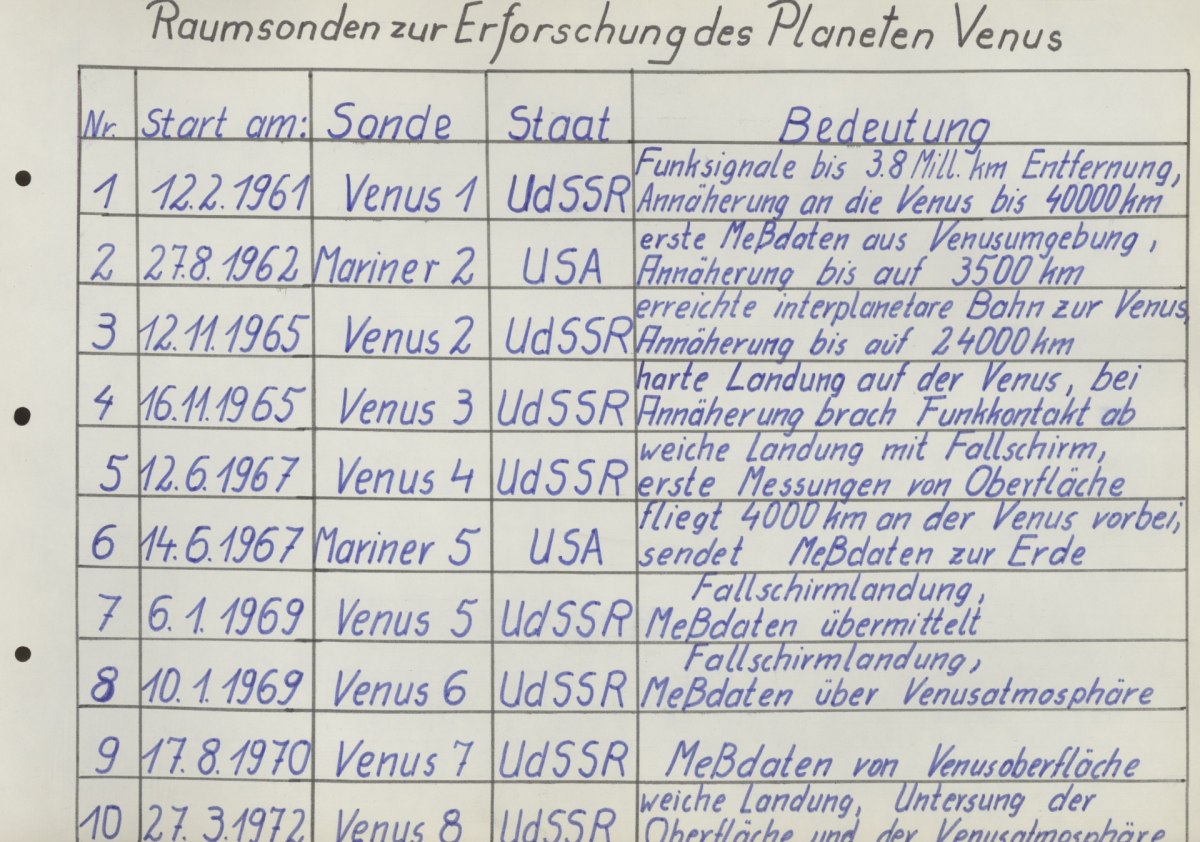 Raumsonden zur Erforschung des Planeten Venus
Nr. Start am: Sonde Staat Bedeutung
1 12.2.1961 Venus 1 UdSSR Funksignale bis 3.8 Mill. km Entfernung,
Annäherung an die Venus bis 40000 km
2 27.8.1962 Mariner 2 USA erste Meßdaten aus Venusumgebung,
Annäherung bis auf 3500 km
3 12.11.1965 Venus 2 UdSSR erreichte interplanetare Bahn zur Venus,
Annäherung bis auf 24000 km
4 16.11.1965 Venus 3 UdSSR harte Landung auf der Venus, bei
Annäherung brach Funkkontakt ab
5 12.6.1967 Venus 4 UdSSR weiche Landung mit Fallschirm,
erste Messungen von Oberfläche
6 14.6.1967 Mariner 5 USA fliegt 4000 km an der Venus vorbei,
sendet Meßdaten zur Erde
7 6.1.1969 Venus 5 UdSSR Fallschirmlandung,
Meßdaten übermittelt
8 10.1.1969 Venus 6 UdSSR Fallschirmlandung,
Meßdaten über Venusatmosphäre
9 17.8.1970 Venus 7 UdSSR Meßdaten von Venusoberfläche
10 27.3.1972 Venus 8 UdSSR weiche Landung, Untersung der
Oberfläche und der Venusatmosphäre